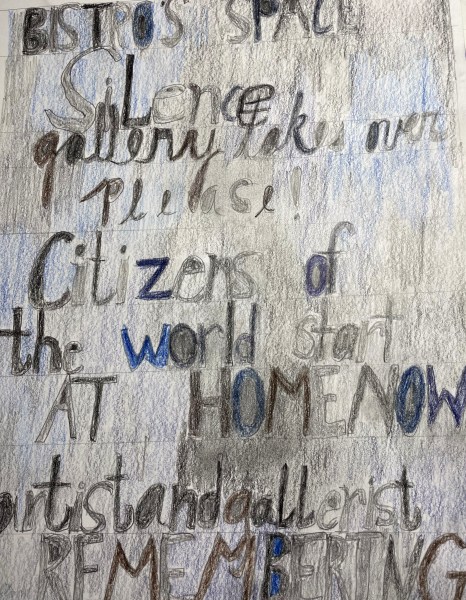 BISTRO'S SPACE
SiLence
gallery takes over
please!
Citizens of
the world start
AT HOMENOW
artistandgallerist
REMEMBERING